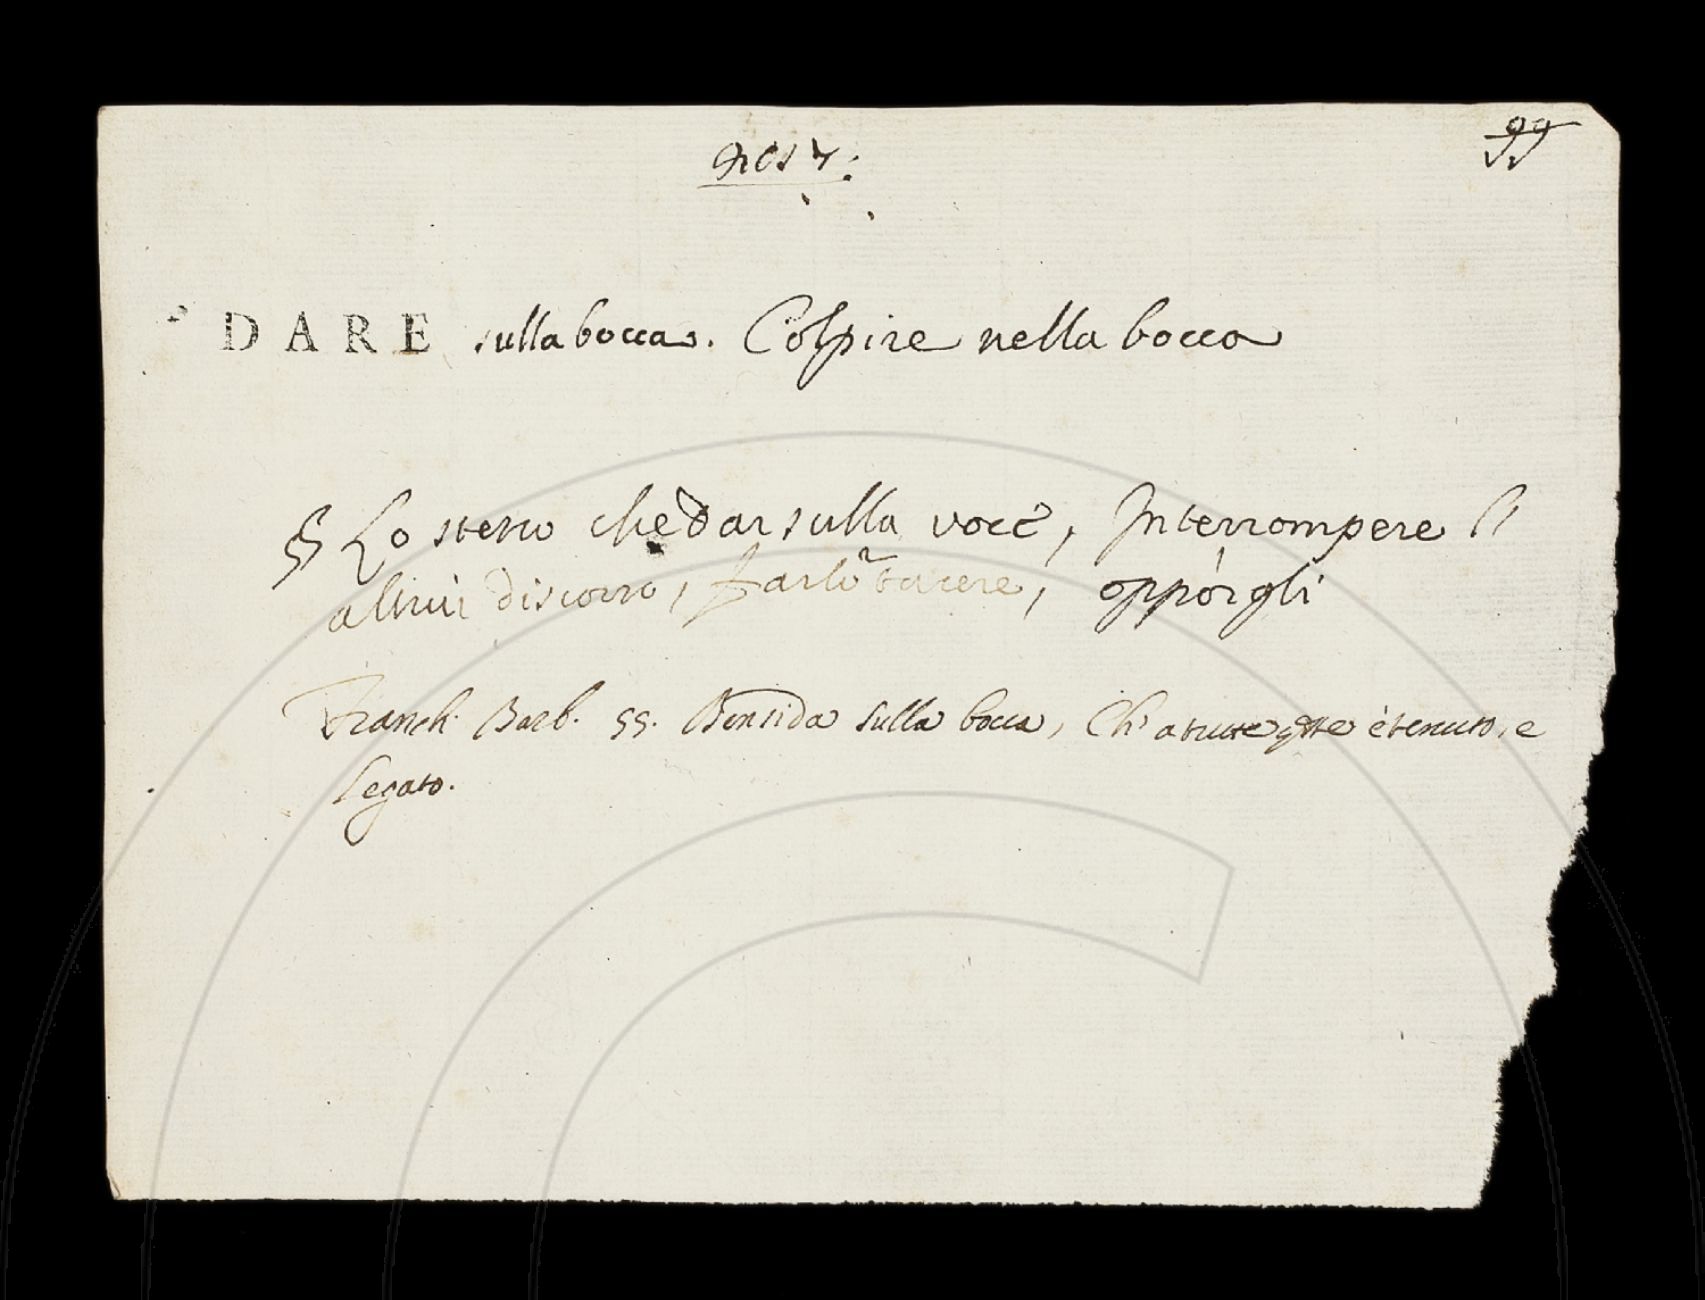 99
DARE sulla bocca. Colpire nella bocca
§ Lo stesso che dar sulla voce, Interrompere l'
altrui discorso, Farlo tacere, oppórgli
Franch. Barb. 55. Ben si da sulla bocca, Ch' a tutte qste è tenuto, e
legato.